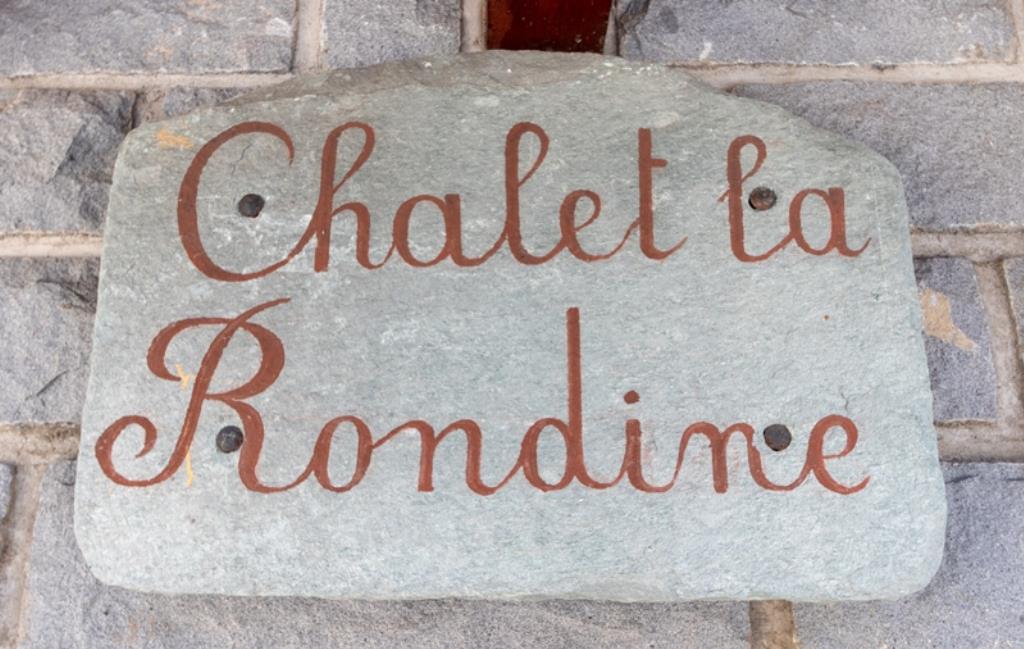 Chalet la
Rondine